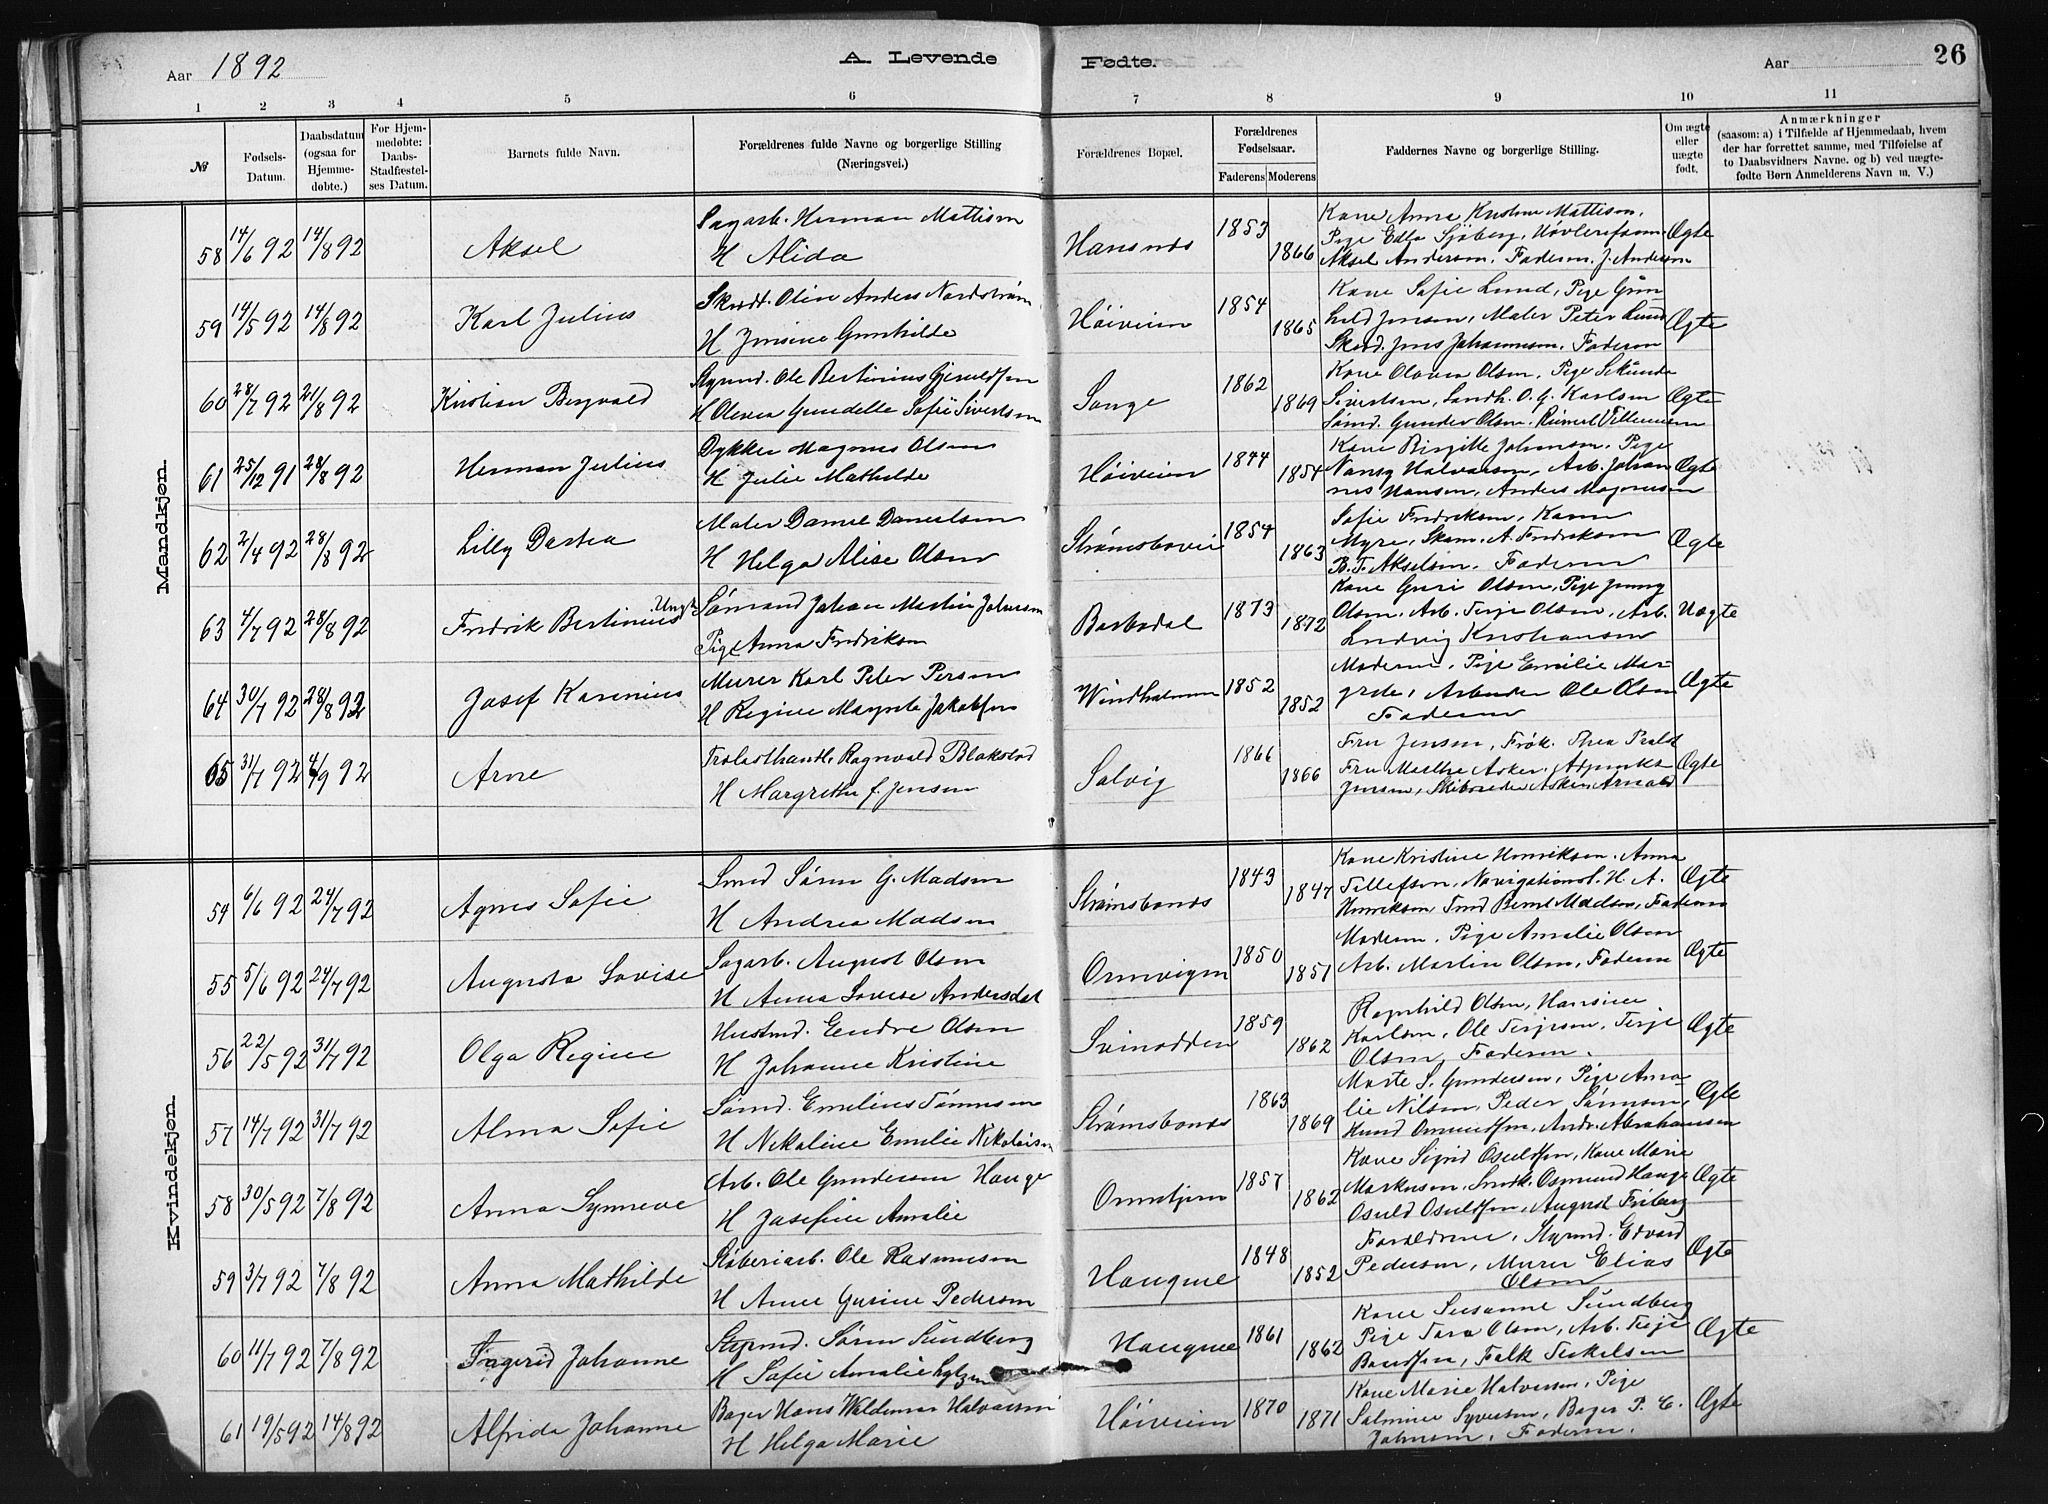 Aar 1892
A. Levende Fødte.
Aar
26
1 2 3 4 5 6 7 8 9 10 11
№
Fødsels-Datum.
Daabsdatum (ogsaa for Hjemme-døbte.)
For Hjem-medøbte: Daabs-Stadfæstel-ses Datum.
Barnets fulde Navn.
Forældrenes fulde Navne og borgerlige Stilling (Næringsvei.)
Forældrenes Bopæl.
Forældrenes Fødselsaar.
Faderens Moderens
Faddernes Navne og borgerlige Stilling.
Om ægte eller uægte født.
Anmærkninger
(saasom: a) i Tilfælde af Hjemmedaab, hvem
der har forrettet samme, med Tilføielse af
to Daabsvidners Navne. og b) ved uægte-
fødte Børn Anmelderens Navn m. V.)
Mandkjøn.
58 14/6 92 14/8 92 Aksel
Sagarb. Herman Mattison
H Alida
Hansnæs 1853 1866
Kone Anna Kristine Mattison,
Pige Edla Sjøberg,
Aksel Anderson. Faderen. J. Anderson
Ægte
59 14/5 92 14/8 92 Karl Julius
Skrædt. Olin Anders Nordstrøm
H Jensine Gunhilde
Høiveien 1854 1865
Kone Sofie Lund, Pige Gun
hild Jensen, Maler Peter Lund
Skræd. Jens Johannesen. Faderen
Ægte
60 28/7 92 21/8 92 Kristian Bergvald
Styrmd. Ole Bertinius Gjeruldsen
H Olevia Gundelle Sofie Sivertsen
Songe 1862 1869
Kone Olovia Olsen, Pige Sekunda
Sivertsen, Landh. O. G. Karlsen
Sømd. Gunder Olsen.
Ægte
61 25/12 91 28/8 92 Herman Julius
Dykker Magnus Olsen
H Julie Mathilde
Høiveien 1844 1854
Kone Birgitte Johnsen. Pige
Nansy Halvorsen, Arb. Johan
nes Hansen, Anders Magnusen
Ægte
62 2/4 92 28/8 92 Lilly Dastea
Maler Daniel Danielsen
H Helga Alise Olsen
Strømsbovei 1854 1863
Sofie Fredriksen, Karen
Myre, Skom. A. Fredriksen
B. T. Akselsen. Faderen
Ægte
63 4/7 92 28/8 92 Fredrik Bertinius
Ungk. Sømand Johan Martin Johnsen
Pige Anna Fredriksen
Barbodal 1873 1872
Kone Guri Olsen, Pige Jenny
Olsen, Arb. Terje Olsen, Arb.
Ludvig Kristiansen
Uægte
64 30/7 92 28/8 92 Josef Karenius
Murer Karl Peter Persen
H Regine Margrete Jakobsen
Windholmen 1852 1852
Moderen, Pige Emilie Mar-
grete, Arbeider Ole Olsen
Faderen
Ægte
65 31/7 92 4/9 92 Arne
Trælasthandl. Ragnvald Blakstad
H Margrethe f. Jensen
Solvig 1866 1866
Fru Jensen, Frøk. Thea
Fru Marthe Asker. Adjunkt
Jensen, Skibsreder Asker, Arnold
Ægte
Kvindekjøn.
54 6/6 92 24/7 92 Agnes Sofie
Smed Søren G. Madsen
H Andrea Madsen
Strømsbonæs 1843 1847
Kone Kristine Henriksen. Anna
Tellefsen, Navigationsl. H. A.
Henriksen, Smd Bernt Madsen, Faderen
Ægte
55 5/6 92 24/7 92 Augusta Lovise
Sagarb. August Olsen
H Anna Lovise Andersdat
Ormvigen 1850 1851
Moderen, Pige Amalie Olsen
Arb. Martin Olsen, Faderen
Ægte
56 22/5 92 31/7 92 Olga Regine
Husmd. Eendre Olsen
H Johanne Kristine
Svinodden 1859 1862
Ragnhild Olsen, Hansine
Karlsen, Ole Terjesen, Terje
Olsen, Faderen.
Ægte
57 14/7 92 31/7 92 Alma Sofie
Sømd. Emilius Tønnesen
H Nikoline Emelie Nikolaisen
Strømsbonæs 1863 1869
Marte S. Gundersen, Pige Ama-
lie Nilsen, Peder Sørensen,
Knud Omundsen, Andr. Abrahamsen
Ægte
58 30/5 92 7/8 92 Anna Synneve
Arb. Ole Gundersen Hauge
H Josefine Amalie
1857 1862
Kone Sigrid Osuldsen, Kone Marie
Markusen, Snedk. Osmund Hauge
Osuld Osuldsen, August Friberg
Ægte
59 3/7 92 7/8 92 Anna Mathilde
Støberiarb. Ole Rasmussen
H Anne Gurine Pedersen
Haugene 1848 1852
Forældrene, Styrmd. Edvard
Pedersen, Murer Elias
Olsen
Ægte
60 11/7 92 7/8 92 Ingerid Johanne
Styrmd. Søren Sundberg
H Sofie Amalie
Haugene 1861 1862
Kone Susanne Sundberg
Pige Tara Olsen, Arb. Terje
Falk Terkelsen
Ægte
61 19/5 92 14/8 92 Alfrida Johanne
Bager Hans Waldemar Halvorsen
H Helga Marie
Høiveien 1870 1871
Kone Marie Halvorsen, Pige
Salmine Syversen, Bager P. C.
Johnsen. Faderen.
Ægte